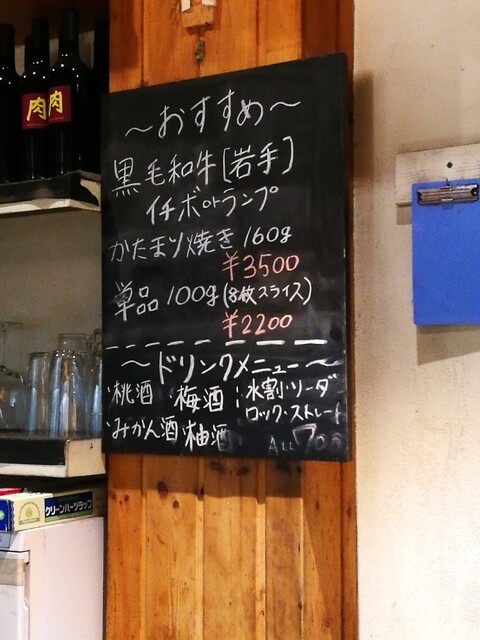 肉
肉
〜おすすめ〜
黒毛和牛[岩手]
イチボorランプ
かたまり焼き 160g
¥3500
単品 100g(8枚スライス)
¥2200
〜ドリンクメニュー〜
・桃酒 ・梅酒
・みかん酒・柚酒
:水割・ソーダ
ロック・ストレート
ALL 700
クリーンハーツラップ